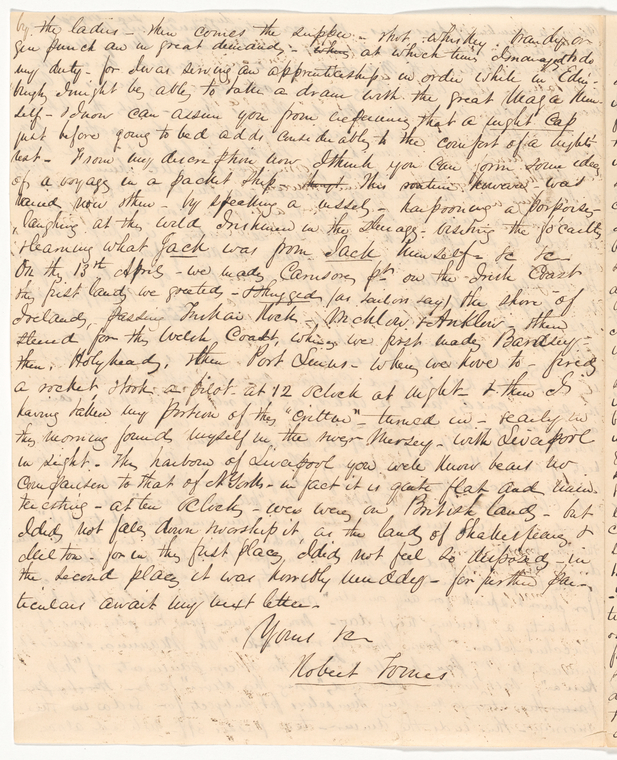 by the ladies – then comes the supper – Hot whiskey, brandy or
gin punch are in great demand – at which time I manage to do
my duty – for I was serving an apprenticeship in order while in Edin-
burgh I might be able to take a dram with the great Maga him-
self – & now can assure you from experience that a night cap
just before going to bed adds considerably to the comfort of a nights
rest – From my description now I think you can form some idea
of a voyage in a packet ship – This routine however – was
varied now & then – by speaking a vessel – harpooning a porpoise –
laughing at the wild Irishmen in the steerage – visiting the forecastle
& learning what Jack was from Jack himself – &c &c
On the 13th April – we made Carnsore pt on the Irish Coast
the first land we greeted – & hugged (as sailors say) the shore of
Ireland, passing Tuskar Rock –, Wicklow, & Arklow, then
steered for the Welsh Coast, where we first made Bardsey –
then, Holyhead, then Port Linus – where we hove to – fired
a rocket, & took a pilot at 12 oclock at night – & then I
having taken my portion of the "critter" – turned in – & early in
the morning found myself in the river Mersey – with Liverpool
in sight – The harbour of Liverpool you well know bears no
comparison to that of N York – in fact it is quite flat and unin-
teresting – at ten oclock – we were on British land – but
I did not fall down & worship it, as the land of Shakespeare, &
Milton – for in the first place, I did not feel so disposed – in
the second place, it was horribly muddy – for further par-
ticulars await my next letter –
Yours &c
Robert Tomes